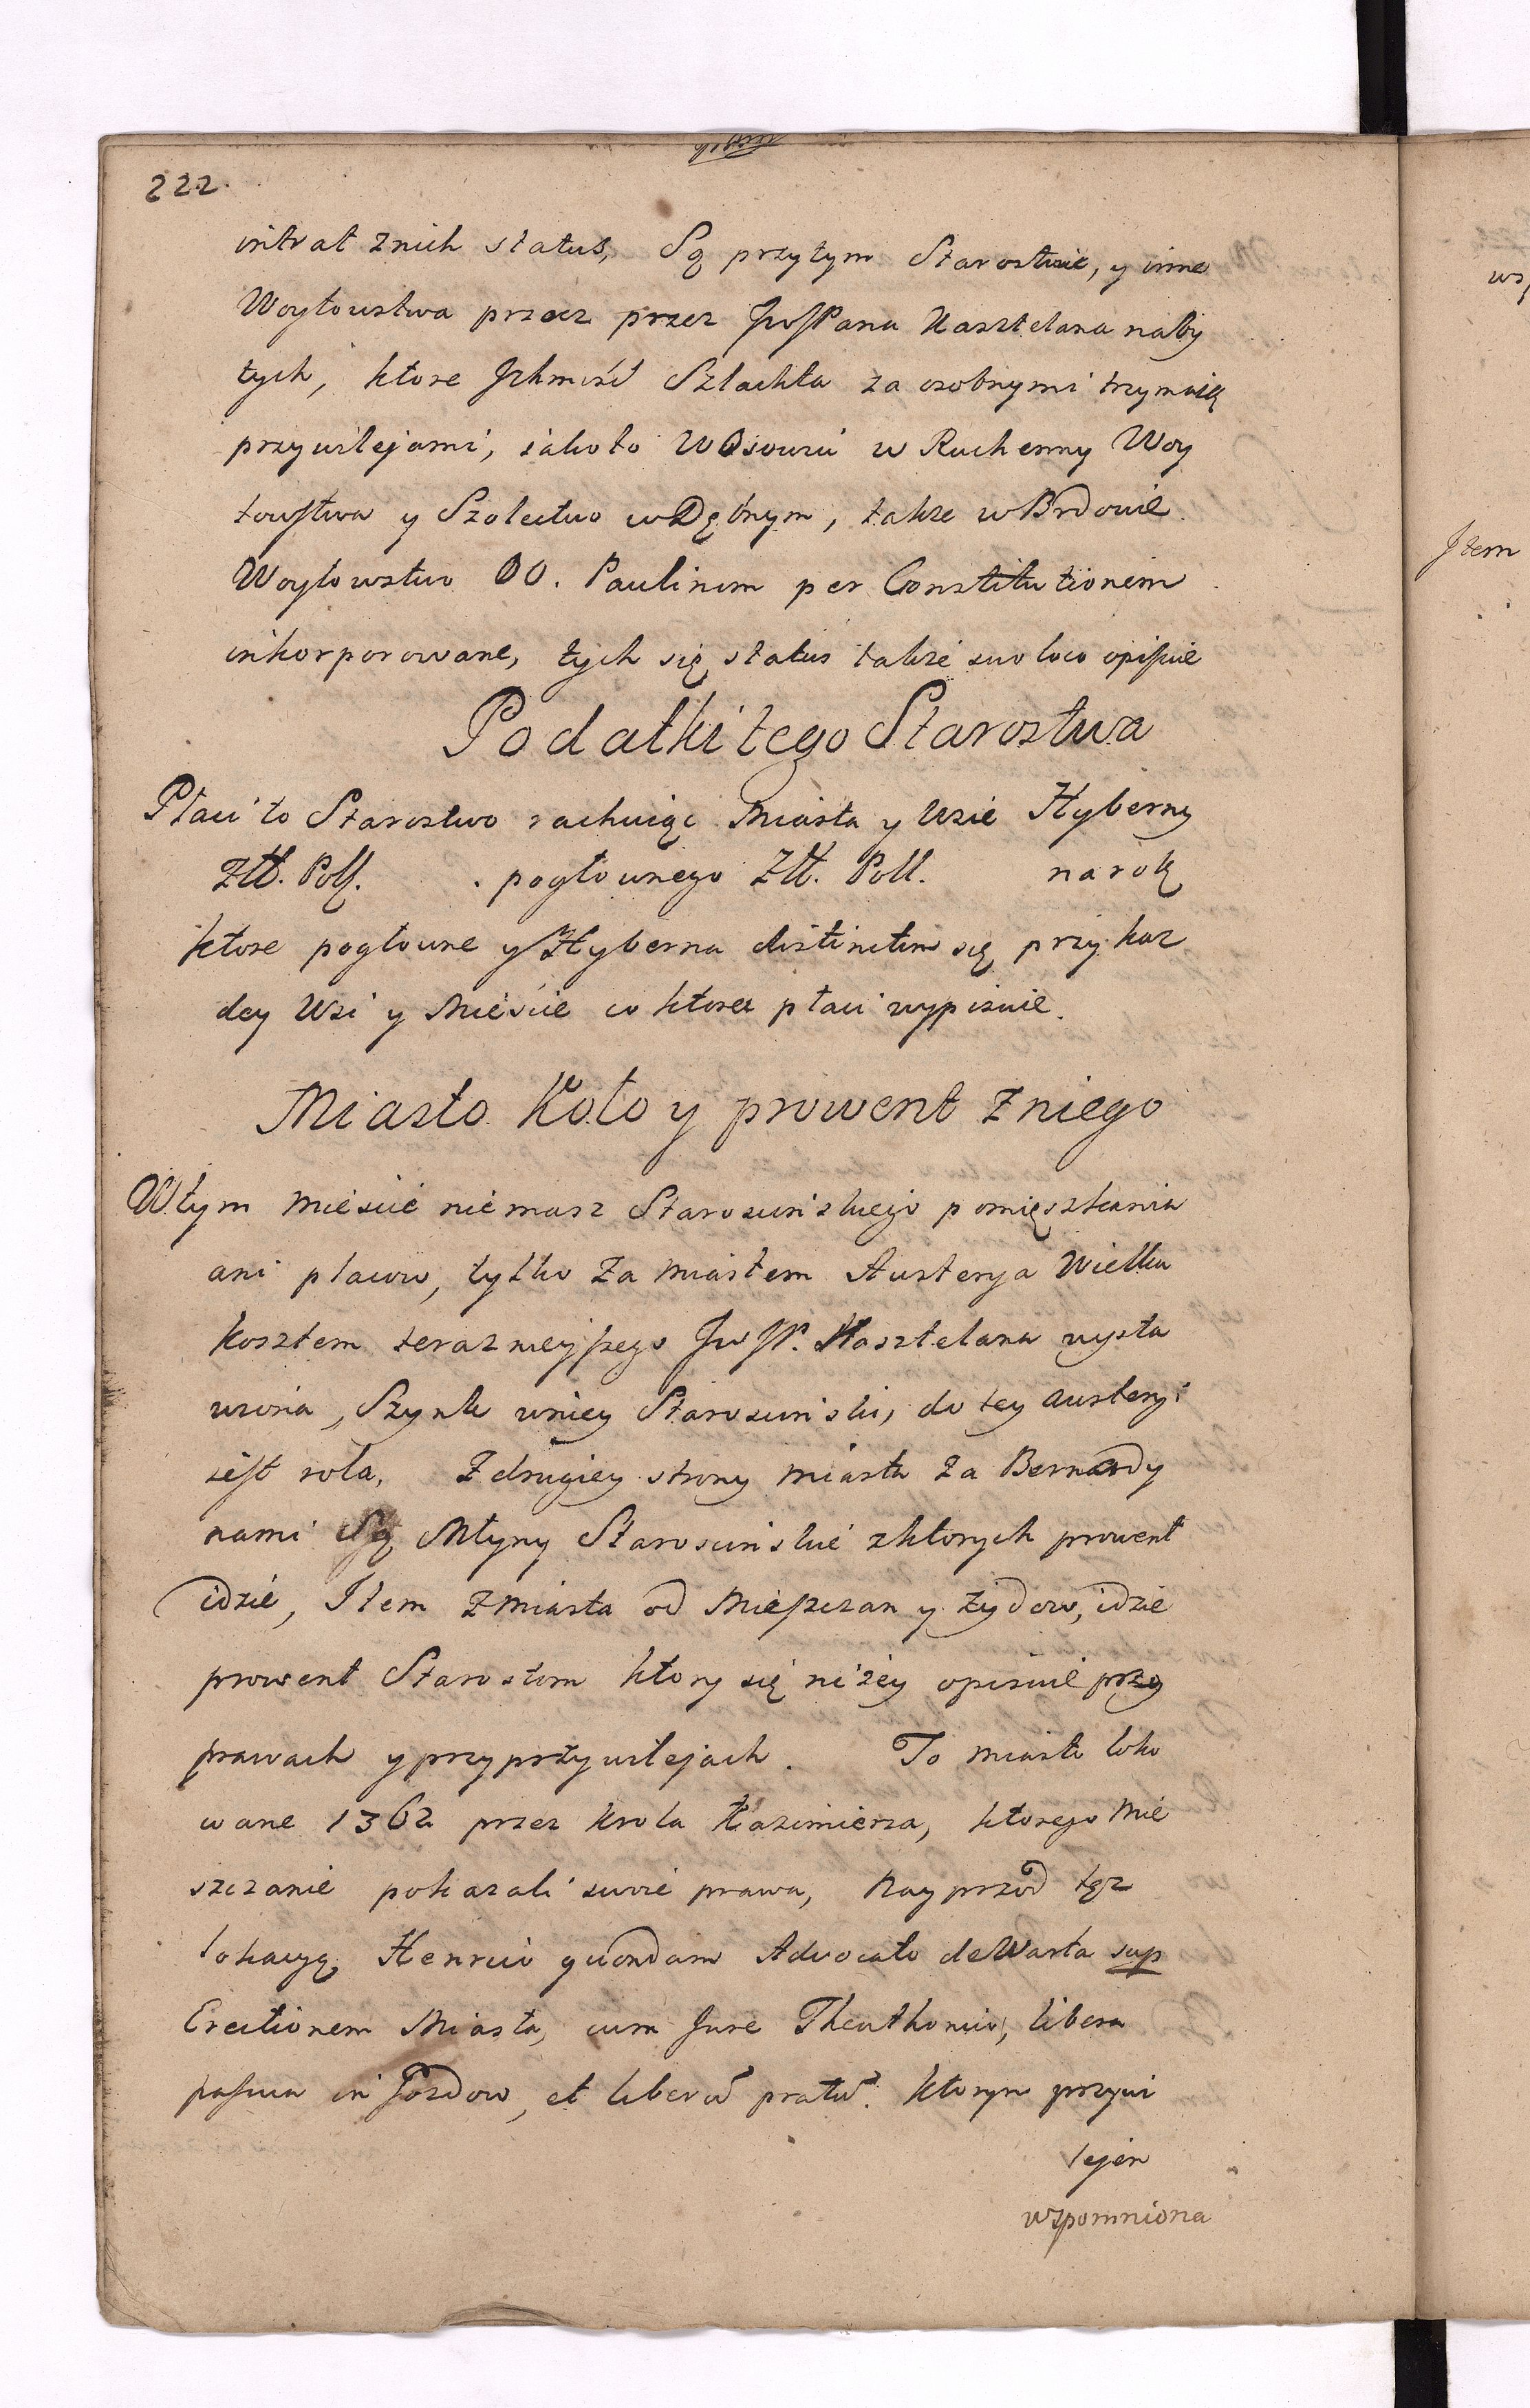 222.
intrat z nich status, Są przytym Starostwie, y inne
Woytowstwa przez przez JwJPana Kasztelana naby
tych, ktore Ichmość Szlachta za osobnymi trzymaią
przywilejami, iako to W Osowiu w Ruchenny Woy
towstwa y Szolectwo w Dębnym, także w Brdowie
Woytowstwo OO. Paulinom per Constitutionem
inkorporowane, tych się status także suo loco opisuie
Podatki tego Starostwa
Płaci to Starostwo rachuiąc Miasta y Wsie Hyberny
Złł. Poll. pogłownego Złł. Poll. na rok
ktore pogłowne y Hyberna distinctim się przy kaz
dey Wsi y Mieście co ktora płaci wypisuie.
Miasto Koło y prowent z niego
W tym Mieście niemasz Starościńskiego pomięszkania
ani placu, tylko za miastem Austerya Wielka
Kosztem teraznieyszego JwJP. Kasztelana wysta
wiona, Szynk w niey Starościński, do tey austeryi
iest rola, Z drugiey strony miasta za Bernardy
nami Są Młyny Starościńskie z ktorych prowent
idzie, Item z Miasta od Mieszczan y żydow, idzie
prowent Starostom ktory się niżey opisuie przy
prawach y przy przywilejach. To miasto loko
wane 1362 przez krola Kazimierza, ktorego Mie
szczanie pokazali swoie prawa, Nayprzod tęz
lokacyą Henrico quondam Advocato de Warta sup
Erectionem Miasta, cum Jure Theuthonico, libera
pascua in Gozdow, et liberū pratū. ktorym przywi
lejem
wspomniona
Item